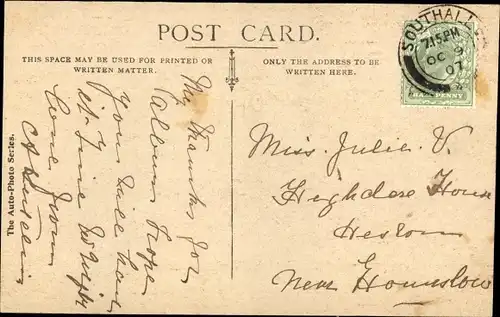 POST CARD.
THIS SPACE MAY BE USED FOR PRINTED OR
WRITTEN MATTER.
ONLY THE ADDRESS TO BE
WRITTEN HERE.
SOUTHALL
7.15 PM
OC 9
07
HALFPENNY
The Auto-Photo Series.
My Thanks for
Album hope
you will have
it fine
love from
Miss. Julie. V.
House
Heston
Near Hounslow